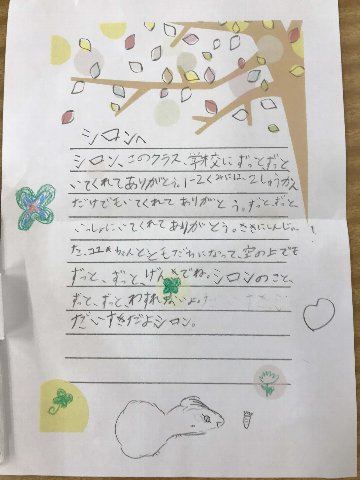 シロンへ
シロン、このクラス、学校にずっとずっと
いてくれてありがとう。1-2くみには、2しゅうかん
だけでもいてくれてありがとう。ずっとずっと
いっしょにいてくれてありがとう。さきにしんじゃっ
た、ココ ちゃんとともだちになって、空の上でも
ずっと、ずっと、げんきでね。シロンのこと、
ずっと、ずっとわすれないよ。
だいすきだよシロン。